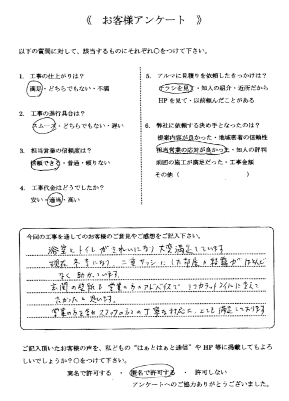 《 お客様アンケート 》
以下の質問に対して、該当するものにそれぞれ○をつけて下さい。
1. 工事の仕上がりは?
満足・どちらでもない・不満
2. 工事の進行具合は?
スムーズ・どちらでもない・遅い
3. 担当営業の信頼度は?
信頼できる・普通・頼りない
4. 工事代金はどうでしたか?
安い・適当・高い
5. アルマに見積りを依頼したきっかけは?
チラシを見て・知人の紹介・近所だから
HPを見て・以前頼んだことがある
6. 弊社に依頼する決め手となったのは?
提案内容が良かった・地域密着の信頼性
担当営業の応対が良かった・知人の評判
前回の施工が満足だった・工事金額
その他( )
今回の工事を通してのお客様のご意見やご感想をご記入下さい。
浴室とトイレがきれいになり大変満足しています。
現在冬季になり、二重サッシにした部屋の結露がほとんど
なく助かっています。
玄関の壁紙も営業の方のアドバイスで
よかったと思います。
営業の方を含めスタッフの方の丁寧な対応に、とても満足しております
ご記入頂いたお客様の声を、私どもの“はぁとはぁと通信”やHP等に掲載してもよろ
しいでしょうか?○をつけて下さい。
実名で許可する ・ 匿名で許可する ・ 許可しない
アンケートへのご協力ありがとうございました。